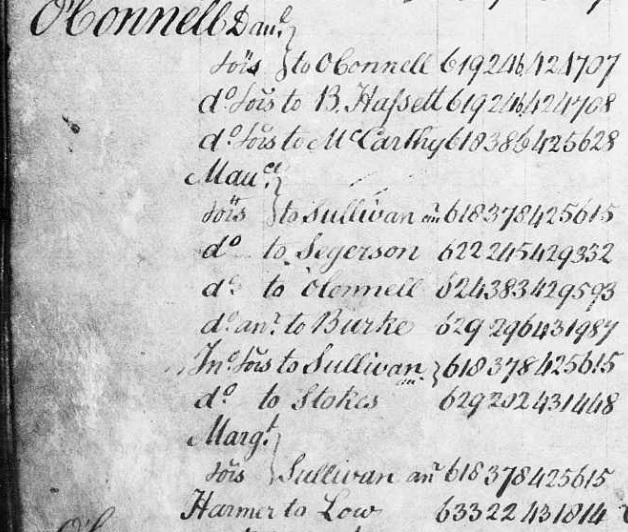 O'Connell Danl.
fors to O Connell 619 246 424707
do. fors to B. Hassett 619 246 424708
do. fors to McCarthy 618 386 425628
Maurce.
fors to Sullivan an. 618 378 425615
do to Segerson 622 245 429332
do to OConnell 624 383 429593
do. anr. to Burke 629 296 431987
Jno. fors to Sullivan an. 618 378 425615
do. to Stokes 629 202 431448
Margt.
fors Sullivan anr 618 378 425615
Harmer to Low 633 22 431814